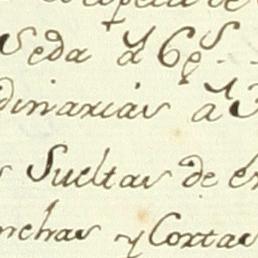 Seda á 6ps..
dinarias á 13
Sueltas de en
nchas y Cortas